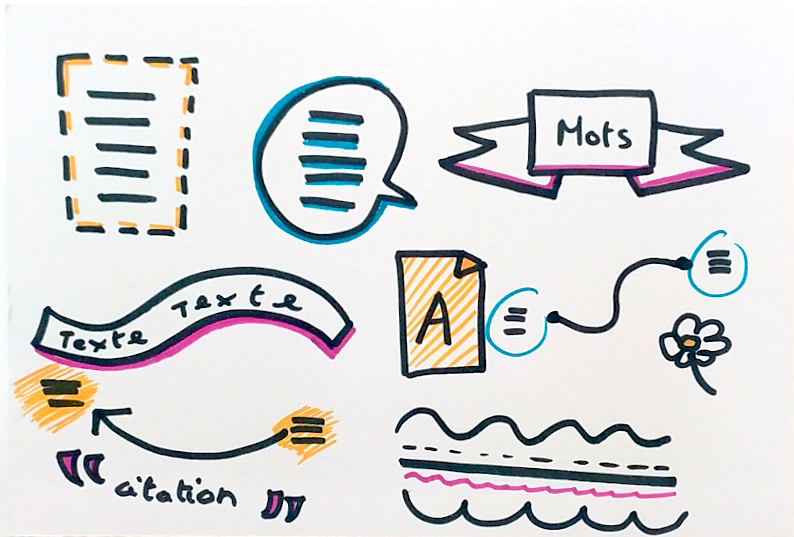 Mots
Texte Texte
A
“ citation ”